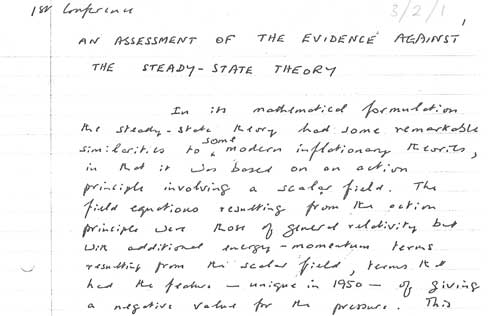 1st Conference
3/2/1
1
AN ASSESSMENT OF THE EVIDENCE AGAINST
THE STEADY-STATE THEORY
In its mathematical formulation
the steady-state theory had some remarkable
similarities to some modern inflationary theories,
in that it was based on an action
principle involving a scalar field. The
field equations resulting from the action
principle were those of general relativity but
with additional energy-momentum terms
resulting from the scalar field, terms that
had the feature – unique in 1950 – of giving
a negative value for the pressure. This